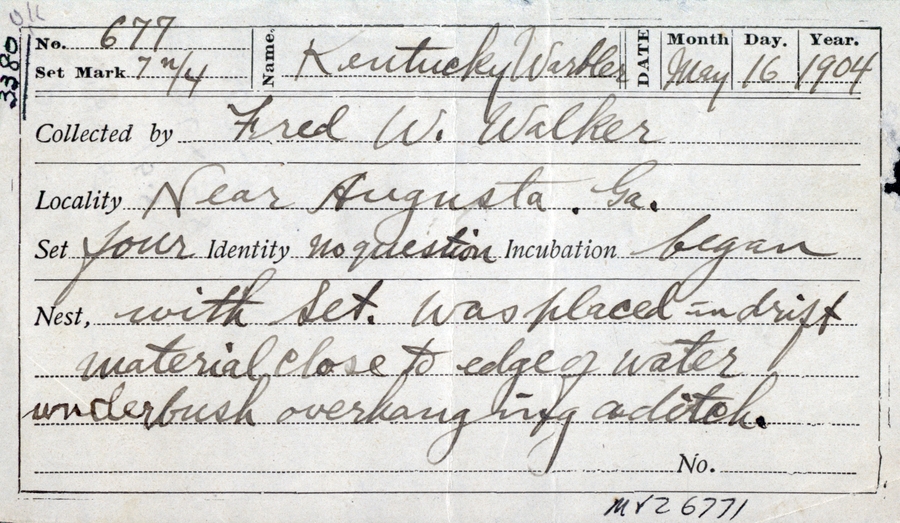 OK
3380
No. 677 Name. Kentucky Warbler DATE Month Day. Year.
Set Mark 7 n/4 May 16 1904
Collected by Fred W. Walker
Locality Near Augusta. Ga.
Set four Identity no question Incubation began
Nest, with set. Was placed in drift
material close to edge of water
underbush overhanging a ditch.
No.
MVZ 6771